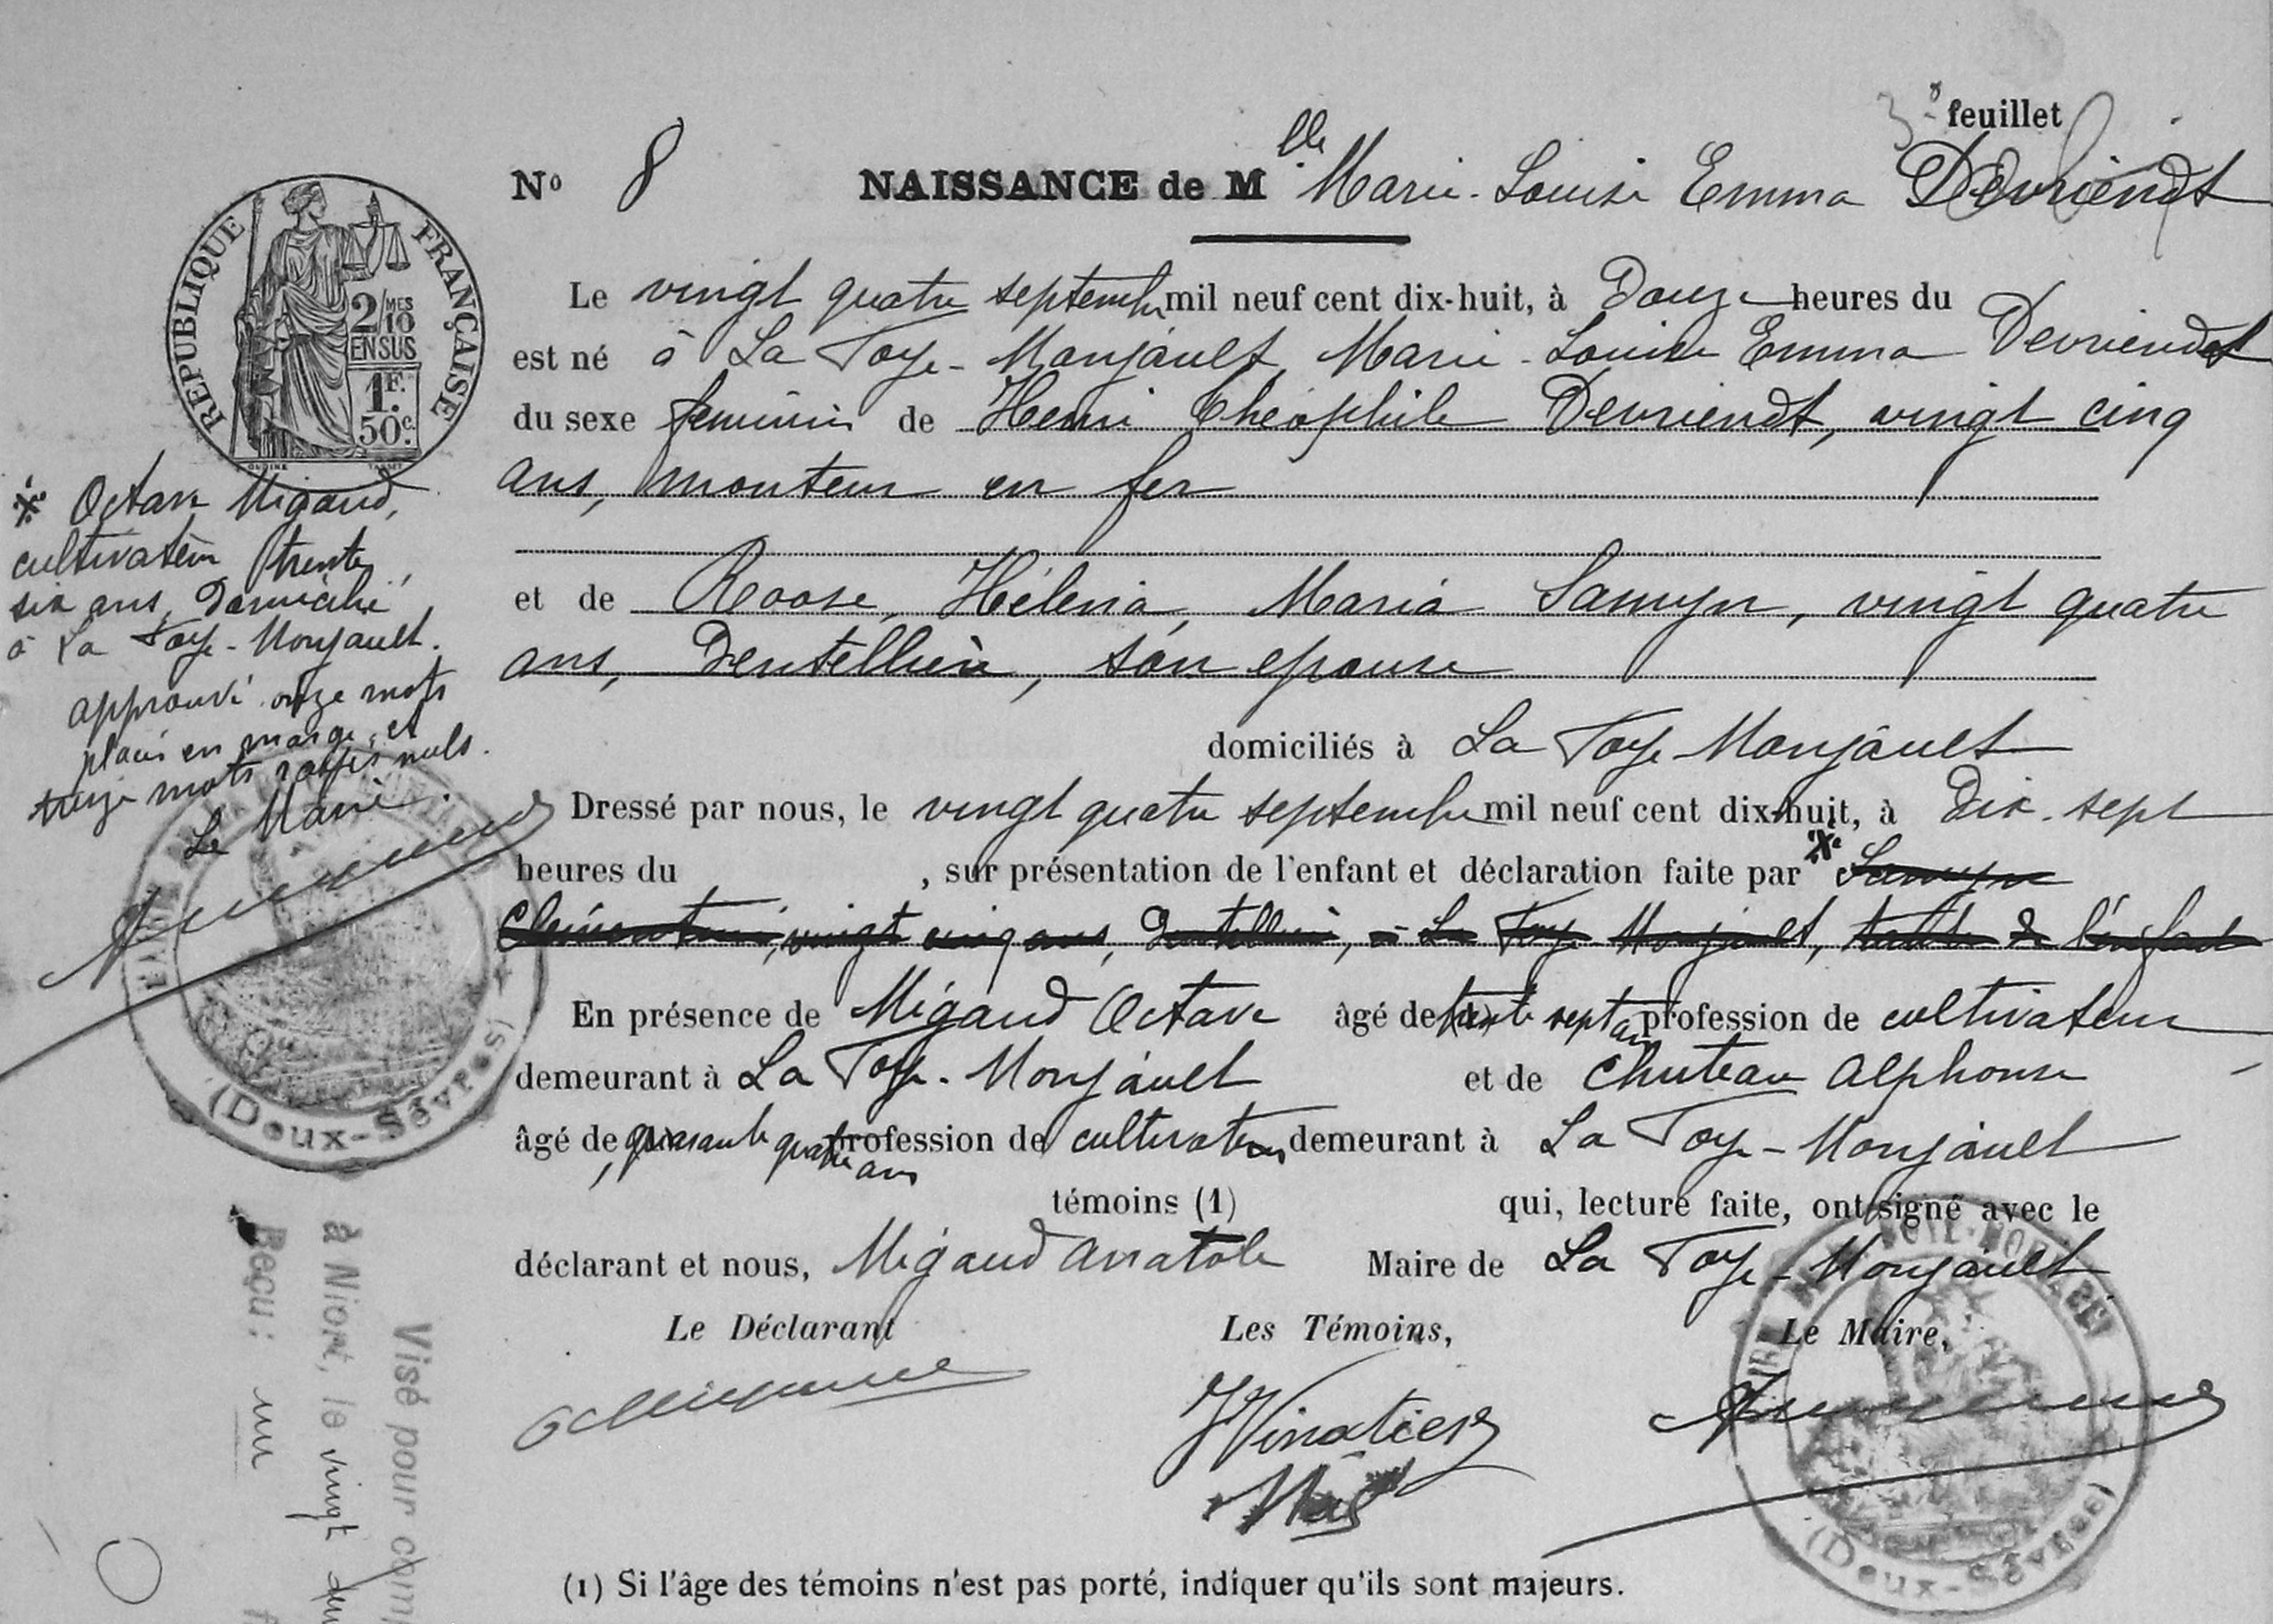 3e feuillet
No 8 NAISSANCE de Mlle Marie-Louise Emma Devriendt
RÉPUBLIQUE FRANÇAISE
2/MES 10 EN SUS
1F. 50c.
Le vingt quatre septembre mil neuf cent dix-huit, à Douze heures du
est né à La Foye-Monjault, Marie-Louise Emma Devriendt
du sexe féminin de Henri Théophile Devriendt, vingt cinq
ans, monteur en fer
et de Roose, Héléna, Maria Samyn, vingt quatre
ans, Dentellière, son épouse
domiciliés à La Foye-Monjault
Dressé par nous, le vingt quatre septembre mil neuf cent dix-huit, à Dix-sept
heures du , sur présentation de l'enfant et déclaration faite par * Samyn
Clémentine, vingt cinq ans, Dentellière, à La Foye Monjault, tante de l'enfant
En présence de Migaud Octave âgé de trente sept ans profession de cultivateur
demeurant à La Foye-Monjault et de Chuteau Alphonse
âgé de quarante quatre ans profession de cultivateur demeurant à La Foye-Monjault
témoins (1) qui, lecture faite, ont signé avec le
déclarant et nous, Migaud Anatole Maire de La Foye-Monjault
Le Déclarant Les Témoins, Le Maire,
(1) Si l'âge des témoins n'est pas porté, indiquer qu'ils sont majeurs.
* Octave Migaud,
cultivateur trente
six ans, Domicilié
à La Foye-Monjault.
approuvé onze mots
placés en marge, et
treize mots rayés nuls.
Le Maire.
(Deux-Sèvres)
(Deux-Sèvres)
Visé pour
à Niort, le vingt
Reçu : un